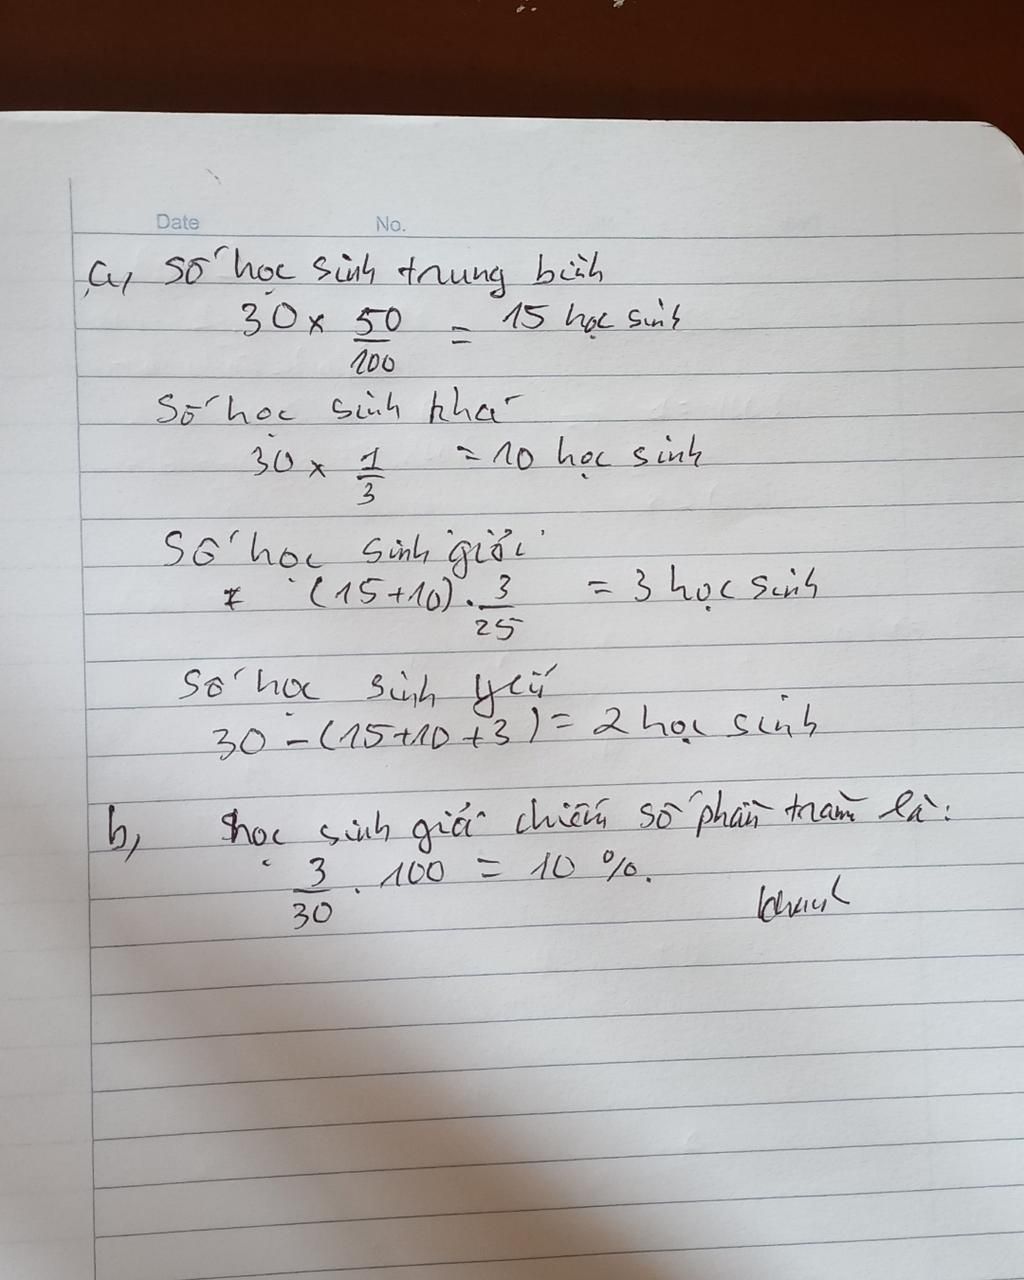 Date No.
a, Số học sinh trung bình
30 × 50/100 = 15 học sinh
Số học sinh khá
30 × 1/3 = 10 học sinh
Số học sinh giỏi
(15+10) . 3/25 = 3 học sinh
Số học sinh yếu
30 - (15+10+3) = 2 học sinh
b, học sinh giỏi chiếm số phần trăm là:
3/30 . 100 = 10 %.